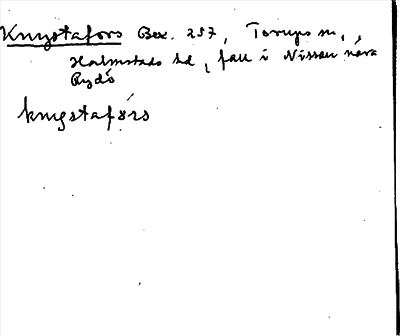 Knystafors Bex. 257, Torups sn,
Halmstads hd, fall i Nissan nära
Rydö
knystafórs